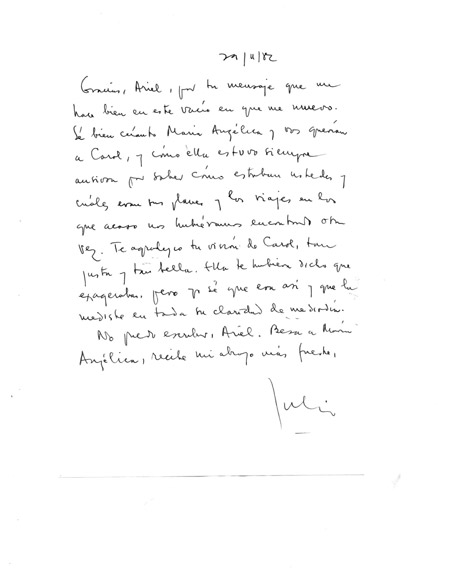 29/11/82
Gracias, Ariel, por tu mensaje que me
hace bien en este vacío en que me muevo.
Sé bien cuánto María Angélica y vos querían
a Carol, y cómo ella estuvo siempre
ansiosa por saber cómo estaban ustedes y
cuáles eran tus planes y los viajes en los
que acaso nos hubiéramos encontrado otra
vez. Te agradezco tu visión de Carol, tan
justa y tan bella. Ella te hubiera dicho que
exagerabas, pero yo sé que era así y que la
mediste en toda su claridad de mediodía.
No puedo escribir, Ariel. Besa a María
Angélica, recibe mi abrazo más fuerte,
Julio